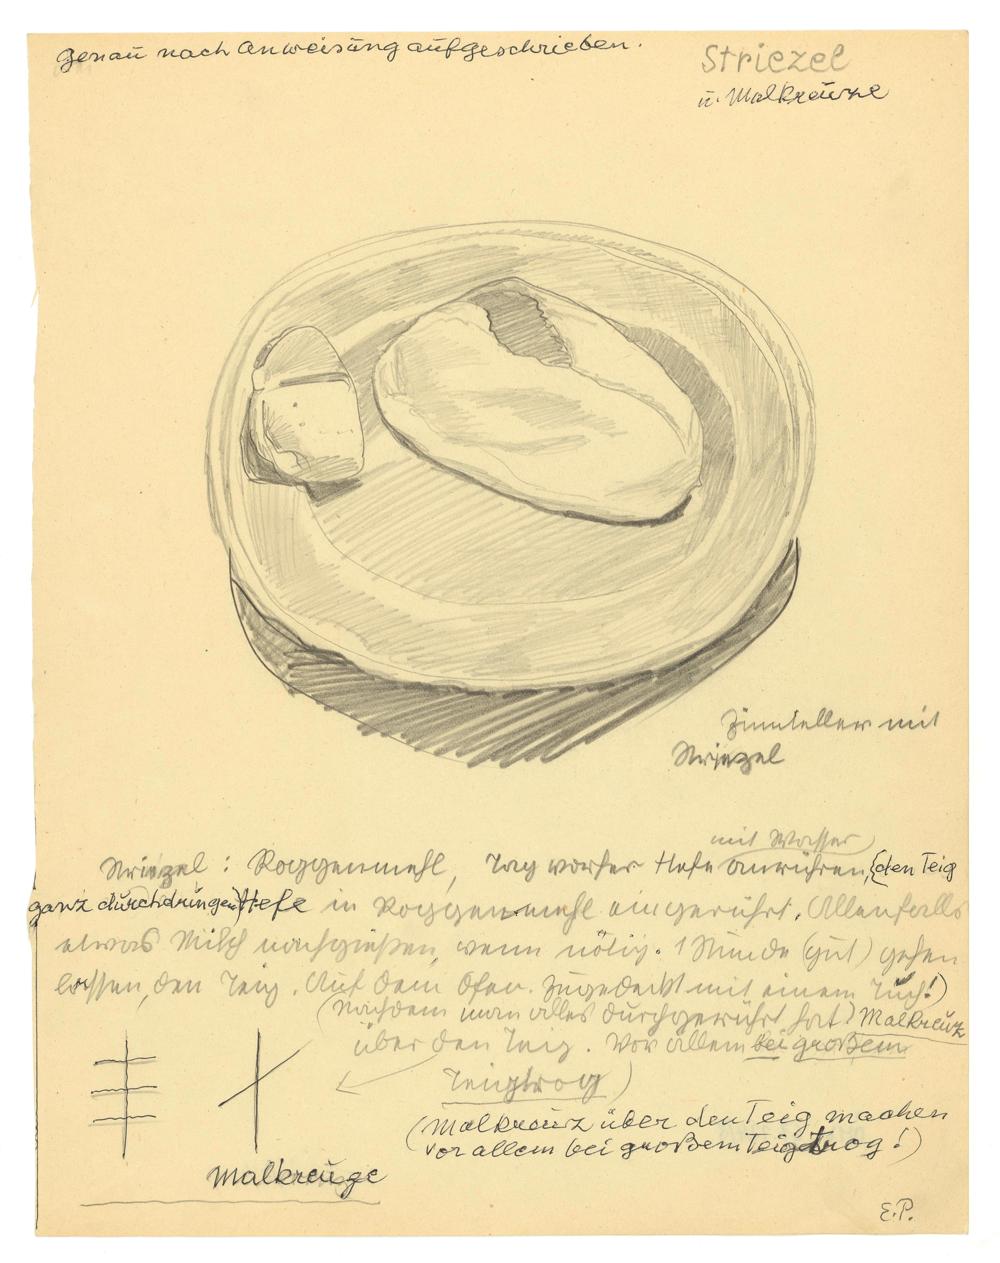 Genau nach Anweisung aufgeschrieben.
Striezel
u. Malkreuze
Zinnteller mit
Striezel
mit Wasser
Striezel: Roggenmehl, Tag vorher Hefe anrühren, (den Teig
ganz durchdringen) Hefe in Roggenmehl eingerührt. Allenfalls
etwas Milch nachgießen, wenn nötig. 1 Stunde (gut) gehen
lassen, den Teig. Auf dem Ofen. Zugedeckt mit einem Tuch!)
(Nachdem man alles durchgerührt hat) Malkreuz
über den Teig. Vor allem bei großem
Teigtrog)
(Malkreuz über den Teig machen
vor allem bei großem Teigtrog!)
Malkreuze
E.P.